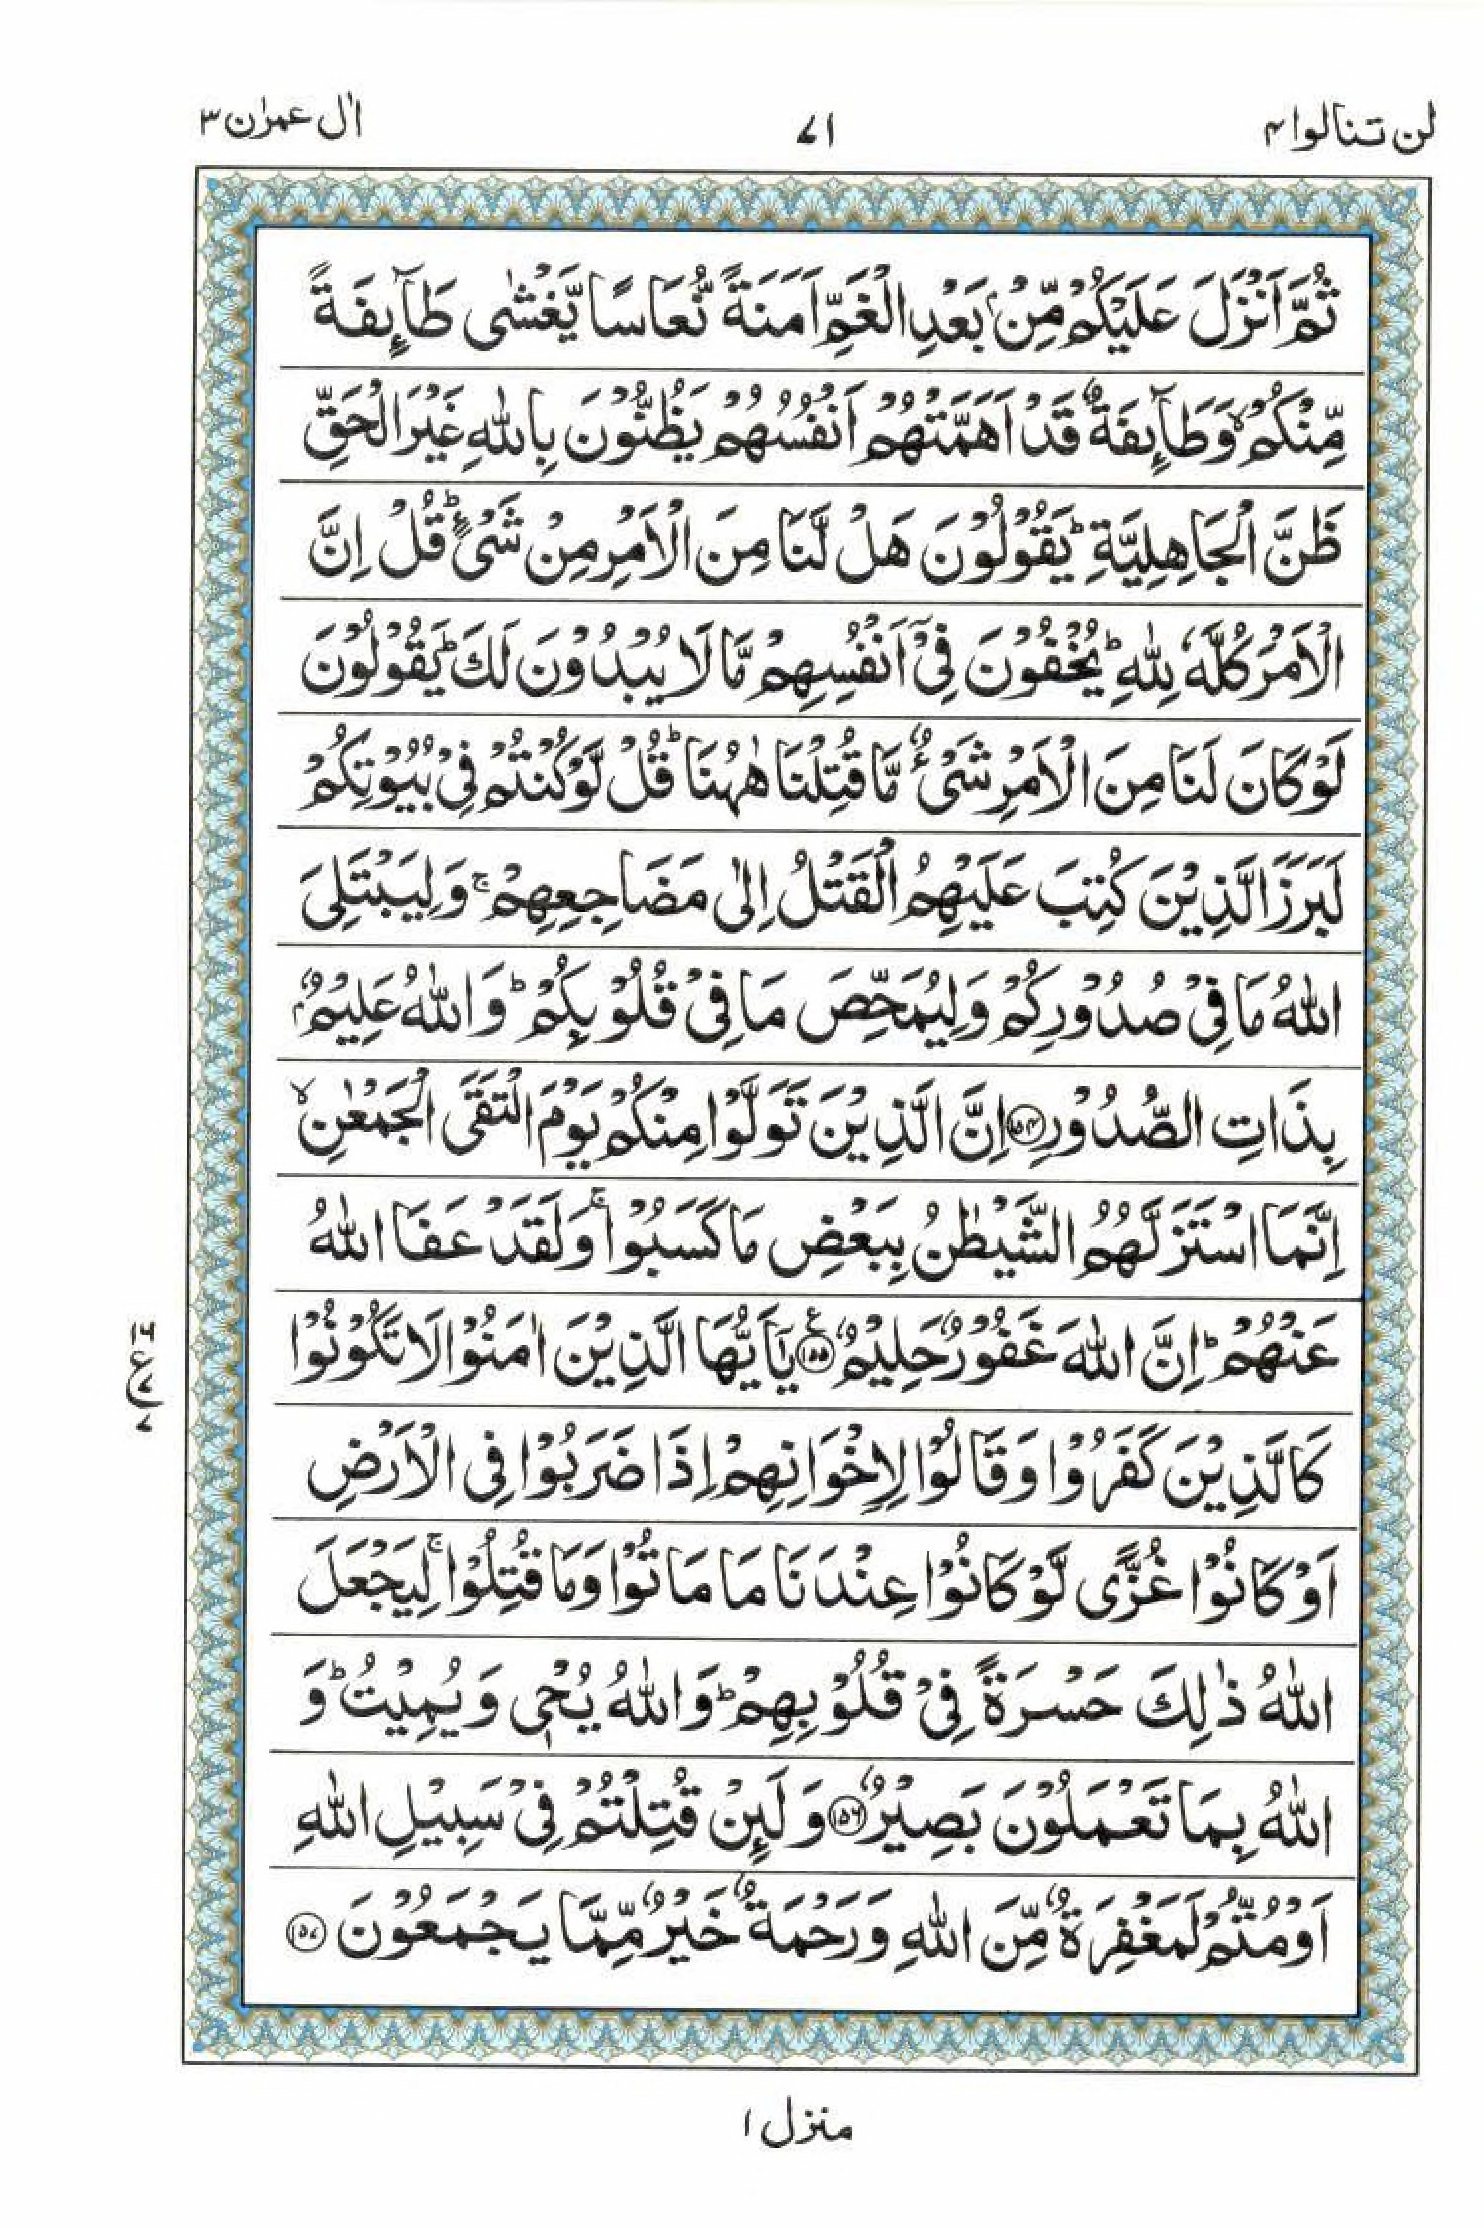 لن تنالوا ۴
۷۱
اٰل عمرٰن ۳
ثُمَّ اَنْزَلَ عَلَيْكُمْ مِّنْۢ بَعْدِ الْغَمِّ اَمَنَةً نُّعَاسًا يَّغْشٰى طَآئِفَةً
مِّنْكُمْۙ وَطَآئِفَةٌ قَدْ اَهَمَّتْهُمْ اَنْفُسُهُمْ يَظُنُّوْنَ بِاللّٰهِ غَيْرَ الْحَقِّ
ظَنَّ الْجَاهِلِيَّةِؕ يَقُوْلُوْنَ هَلْ لَّنَا مِنَ الْاَمْرِ مِنْ شَىْءٍؕ قُلْ اِنَّ
الْاَمْرَ كُلَّهٗ لِلّٰهِؕ يُخْفُوْنَ فِىْۤ اَنْفُسِهِمْ مَّا لَا يُبْدُوْنَ لَكَؕ يَقُوْلُوْنَ
لَوْ كَانَ لَنَا مِنَ الْاَمْرِ شَىْءٌ مَّا قُتِلْنَا هٰهُنَاؕ قُلْ لَّوْ كُنْتُمْ فِىْ بُيُوْتِكُمْ
لَبَرَزَ الَّذِيْنَ كُتِبَ عَلَيْهِمُ الْقَتْلُ اِلٰى مَضَاجِعِهِمْۚ وَلِيَبْتَلِىَ
اللّٰهُ مَا فِىْ صُدُوْرِكُمْ وَلِيُمَحِّصَ مَا فِىْ قُلُوْبِكُمْؕ وَاللّٰهُ عَلِيْمٌۢ
بِذَاتِ الصُّدُوْرِ ۝۱۵۴ اِنَّ الَّذِيْنَ تَوَلَّوْا مِنْكُمْ يَوْمَ الْتَقَى الْجَمْعٰنِۙ
اِنَّمَا اسْتَزَلَّهُمُ الشَّيْطٰنُ بِبَعْضِ مَا كَسَبُوْاۚ وَلَقَدْ عَفَا اللّٰهُ
عَنْهُمْؕ اِنَّ اللّٰهَ غَفُوْرٌ حَلِيْمٌ ۝۱۵۵ع يٰۤاَيُّهَا الَّذِيْنَ اٰمَنُوْا لَا تَكُوْنُوْا
۱۶
ع
۷
۷
كَالَّذِيْنَ كَفَرُوْا وَقَالُوْا لِاِخْوَانِهِمْ اِذَا ضَرَبُوْا فِى الْاَرْضِ
اَوْ كَانُوْا غُزًّى لَّوْ كَانُوْا عِنْدَنَا مَا مَاتُوْا وَمَا قُتِلُوْاۚ لِيَجْعَلَ
اللّٰهُ ذٰلِكَ حَسْرَةً فِىْ قُلُوْبِهِمْؕ وَاللّٰهُ يُحْىٖ وَيُمِيْتُؕ وَ
اللّٰهُ بِمَا تَعْمَلُوْنَ بَصِيْرٌ ۝۱۵۶ وَلَئِنْ قُتِلْتُمْ فِىْ سَبِيْلِ اللّٰهِ
اَوْ مُتُّمْ لَمَغْفِرَةٌ مِّنَ اللّٰهِ وَرَحْمَةٌ خَيْرٌ مِّمَّا يَجْمَعُوْنَ ۝۱۵۷
منزل ۱